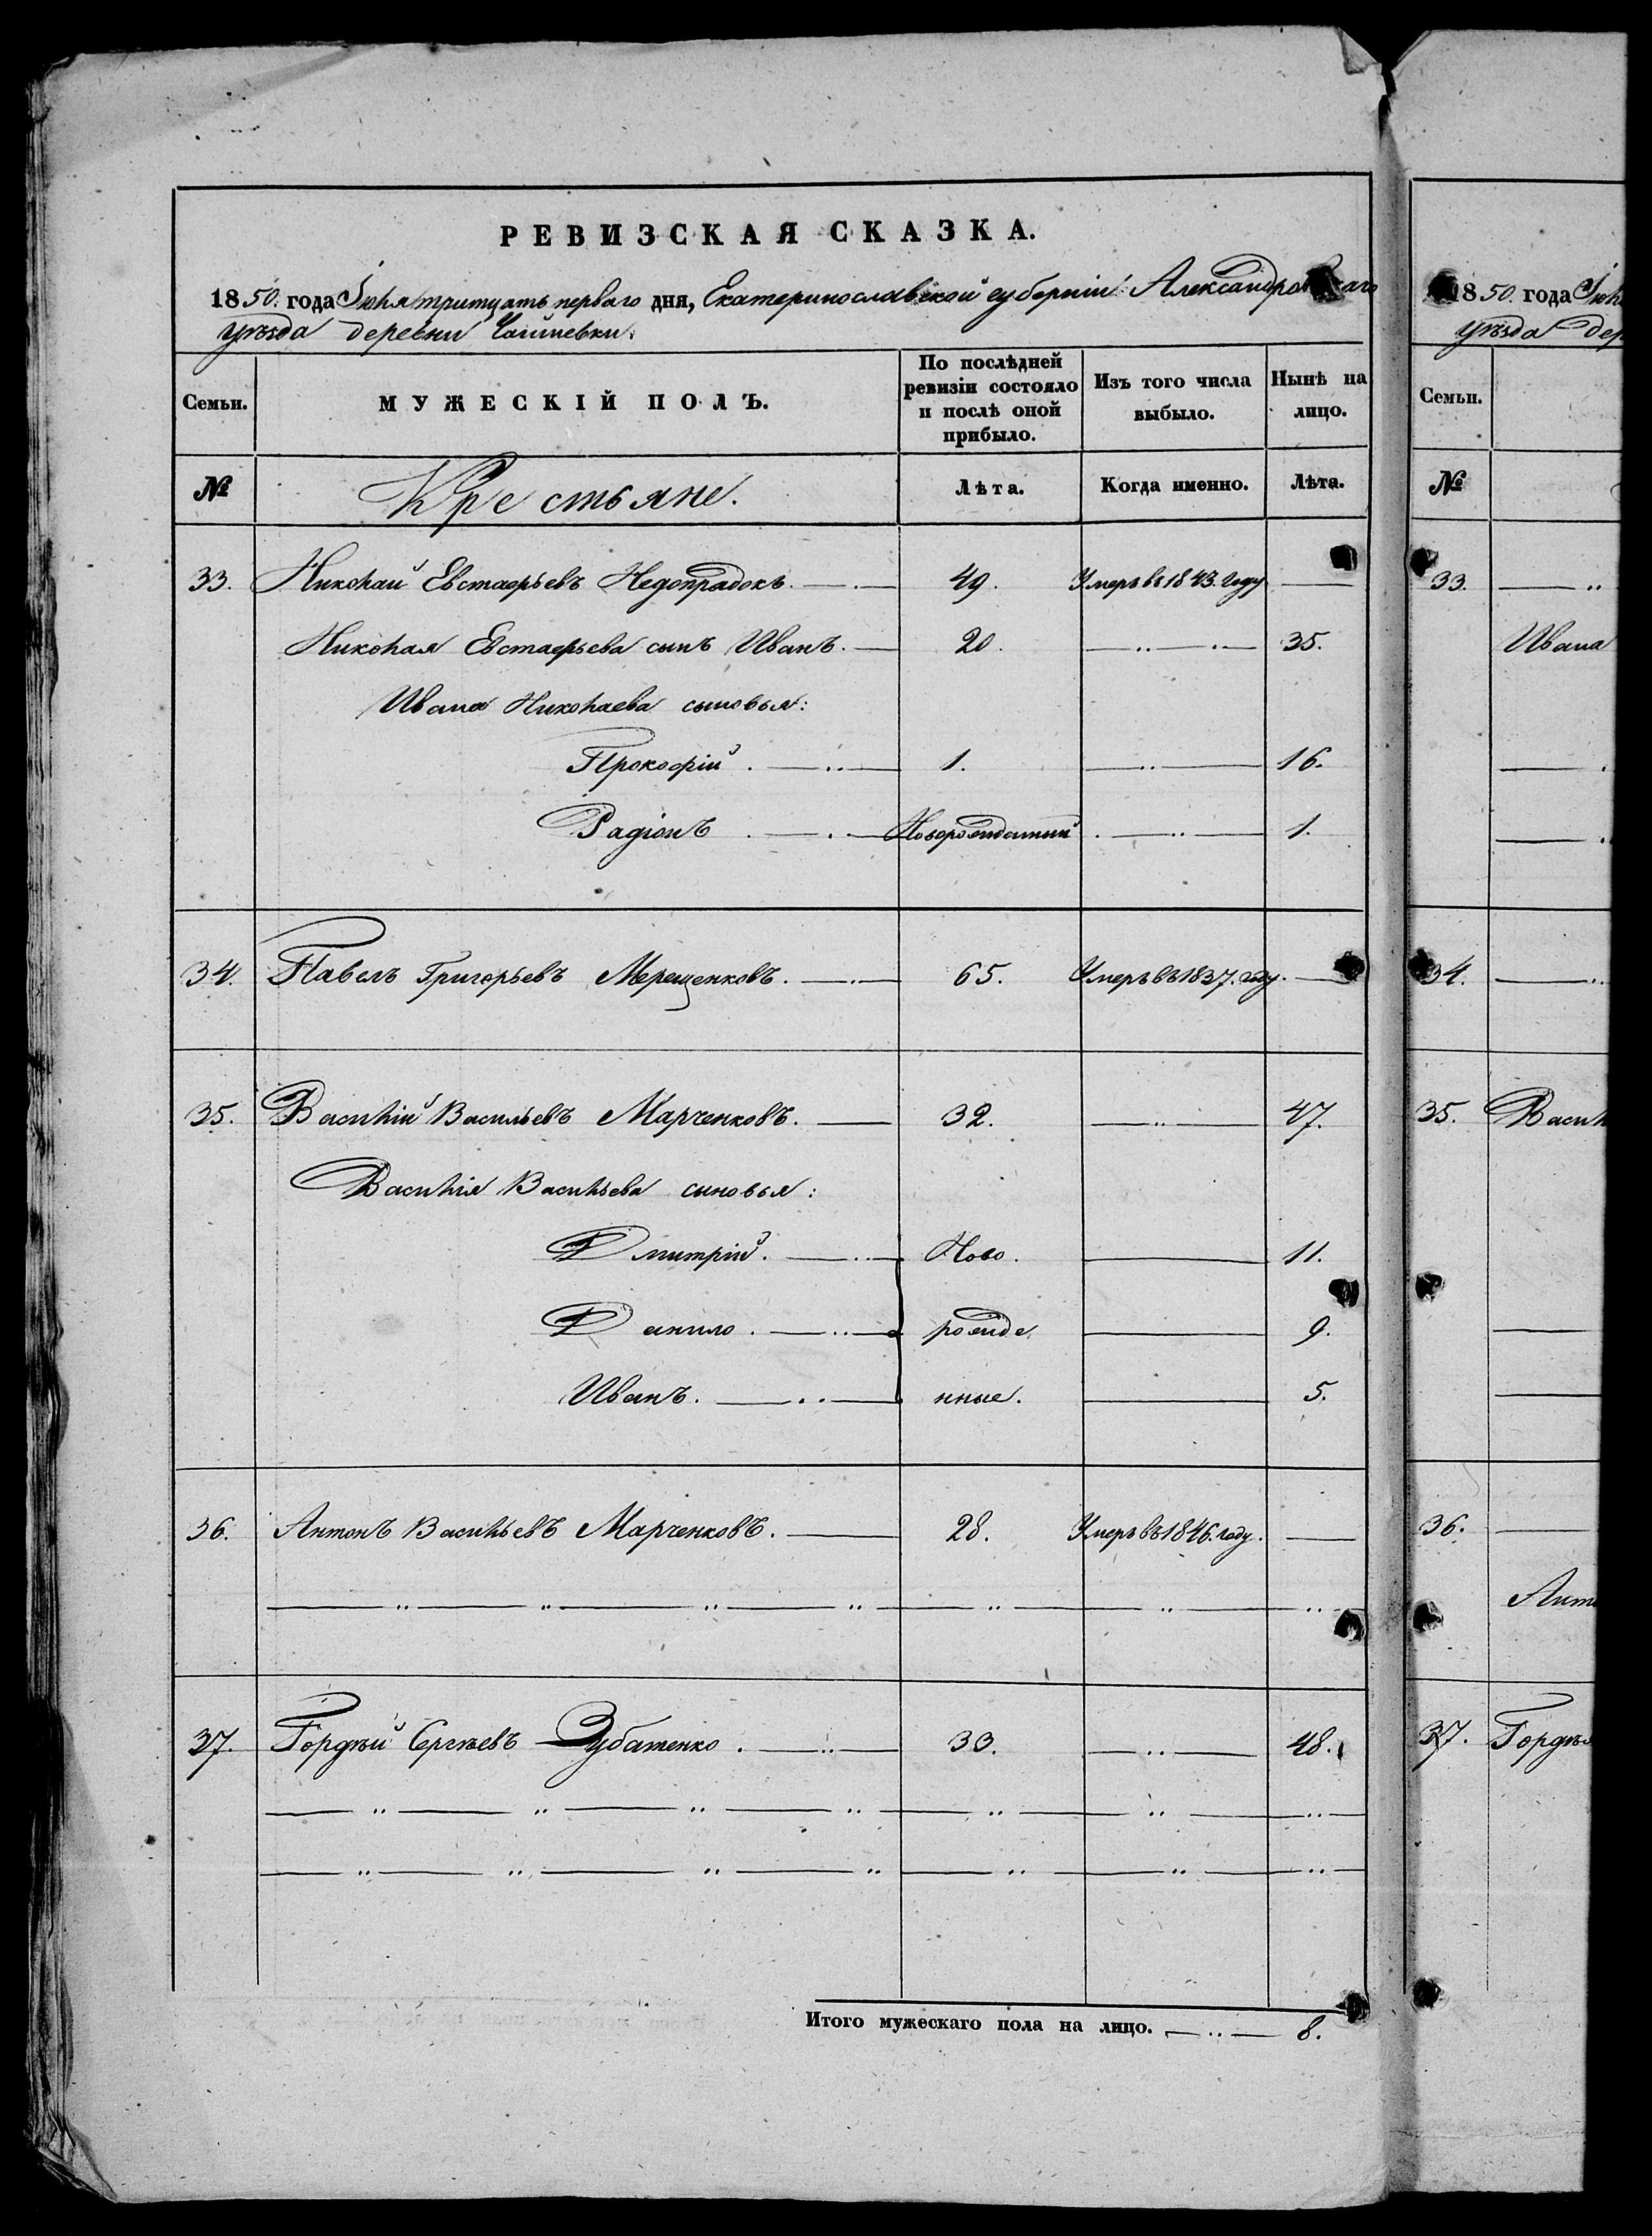 РЕВИЗСКАЯ СКАЗКА.
1850. года Іюля тритцать перваго дня, Екатеринославской губерніи Александровскаго
уѣзда деревни
Семьи. МУЖЕСКІЙ ПОЛЪ. По послѣдней ревизіи состояло и послѣ оной прибыло. Изъ того числа выбыло. Нынѣ на лицо.
№ Крестьяне. Лѣта. Когда именно. Лѣта.
33. Николай Евстафьевъ Недопрадокъ. 49. Умеръ въ 1843. году
Николая Евстафьева сынъ Иванъ. 20. 35.
Ивана Николаева сыновья:
Прокофій. 1. 16.
Радіонъ Новорожденный 1.
34. Павелъ Григорьевъ Мерещенковъ. 65. Умеръ въ 1837. году.
35. Василій Васильевъ Марченковъ. 32. 47.
Василія Васильева сыновья:
Дмитрій. Ново. 11.
Данило. рожде 9.
Иванъ. нные. 5.
36. Антонъ Васильевъ Марченковъ. 28. Умеръ въ 1846. году.
37. Гордѣй Сергѣевъ Зубатенко. 33. 48.
Итого мужескаго пола на лицо. 8.
1850. года Іюл
уѣзда дер
Семьи.
№
33.
Ивана
34.
35. Васил
36.
Анто
37. Гордѣя